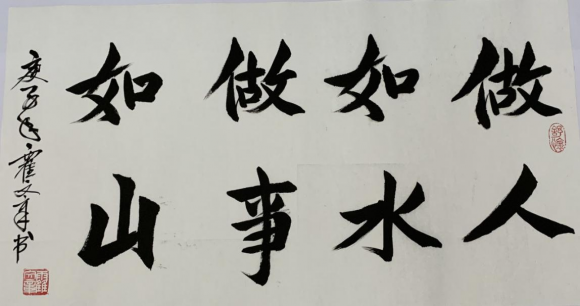 做人
如水
做事
如山
庚子年霍文年书